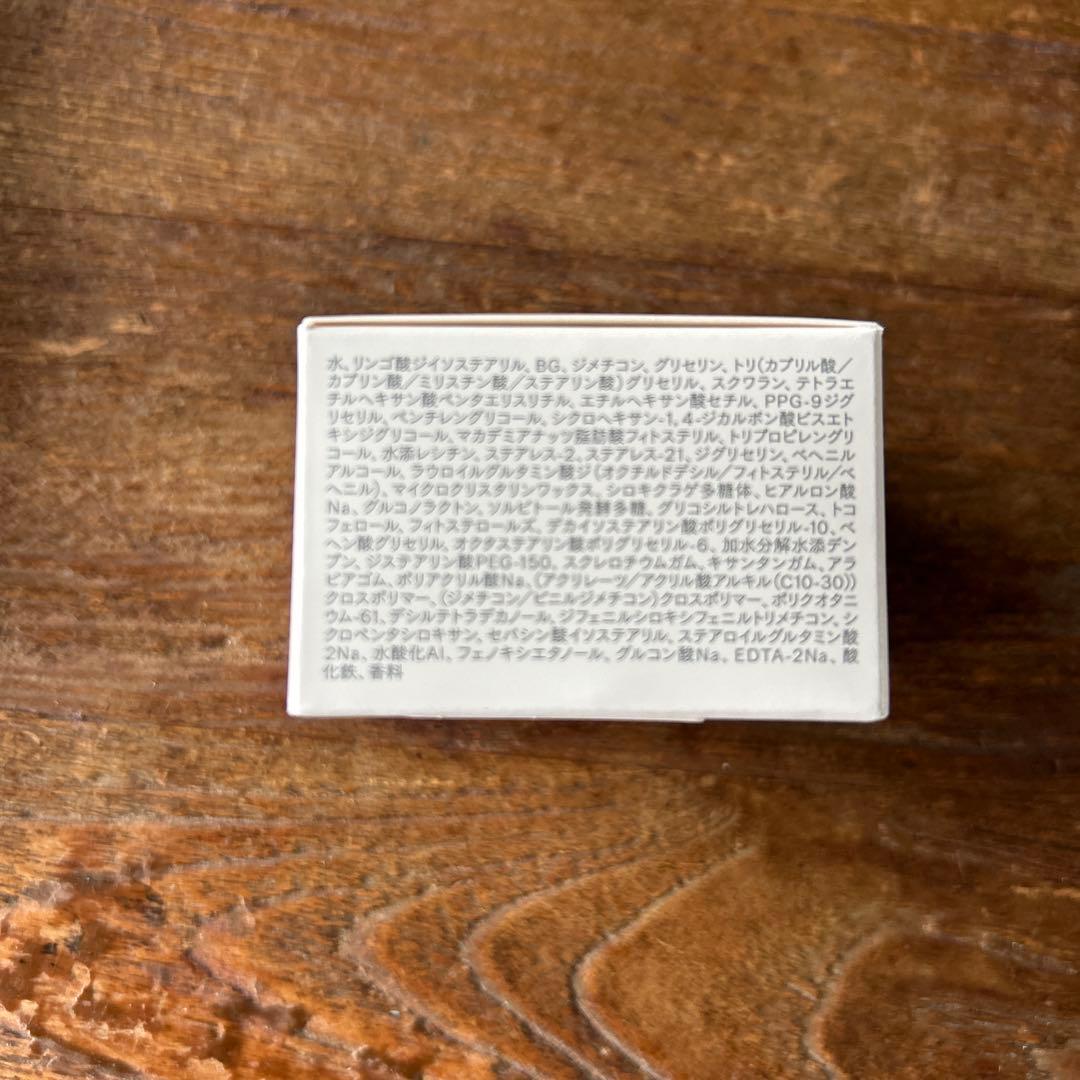 水、リンゴ酸ジイソステアリル、BG、ジメチコン、グリセリン、トリ(カプリル酸／
カプリン酸／ミリスチン酸／ステアリン酸)グリセリル、スクワラン、テトラエ
チルヘキサン酸ペンタエリスリチル、エチルヘキサン酸セチル、PPG-9ジグ
リセリル、ペンチレングリコール、シクロヘキサン-1,4-ジカルボン酸ビスエト
キシジグリコール、マカデミアナッツ脂肪酸フィトステリル、トリプロピレングリ
コール、水添レシチン、ステアレス-2、ステアレス-21、ジグリセリン、ベヘニル
アルコール、ラウロイルグルタミン酸ジ(オクチルドデシル／フィトステリル／ベ
ヘニル)、マイクロクリスタリンワックス、シロキクラゲ多糖体、ヒアルロン酸
Na、グルコノラクトン、ソルビトール発酵多糖、グリコシルトレハロース、トコ
フェロール、フィトステロールズ、デカイソステアリン酸ポリグリセリル-10、ベ
ヘン酸グリセリル、オクタステアリン酸ポリグリセリル-6、加水分解水添デン
プン、ジステアリン酸PEG-150、スクレロチウムガム、キサンタンガム、アラ
ビアゴム、ポリアクリル酸Na、(アクリレーツ／アクリル酸アルキル(C10-30))
クロスポリマー、(ジメチコン／ビニルジメチコン)クロスポリマー、ポリクオタニ
ウム-61、デシルテトラデカノール、ジフェニルシロキシフェニルトリメチコン、シ
クロペンタシロキサン、セバシン酸イソステアリル、ステアロイルグルタミン酸
2Na、水酸化Al、フェノキシエタノール、グルコン酸Na、EDTA-2Na、酸
化鉄、香料